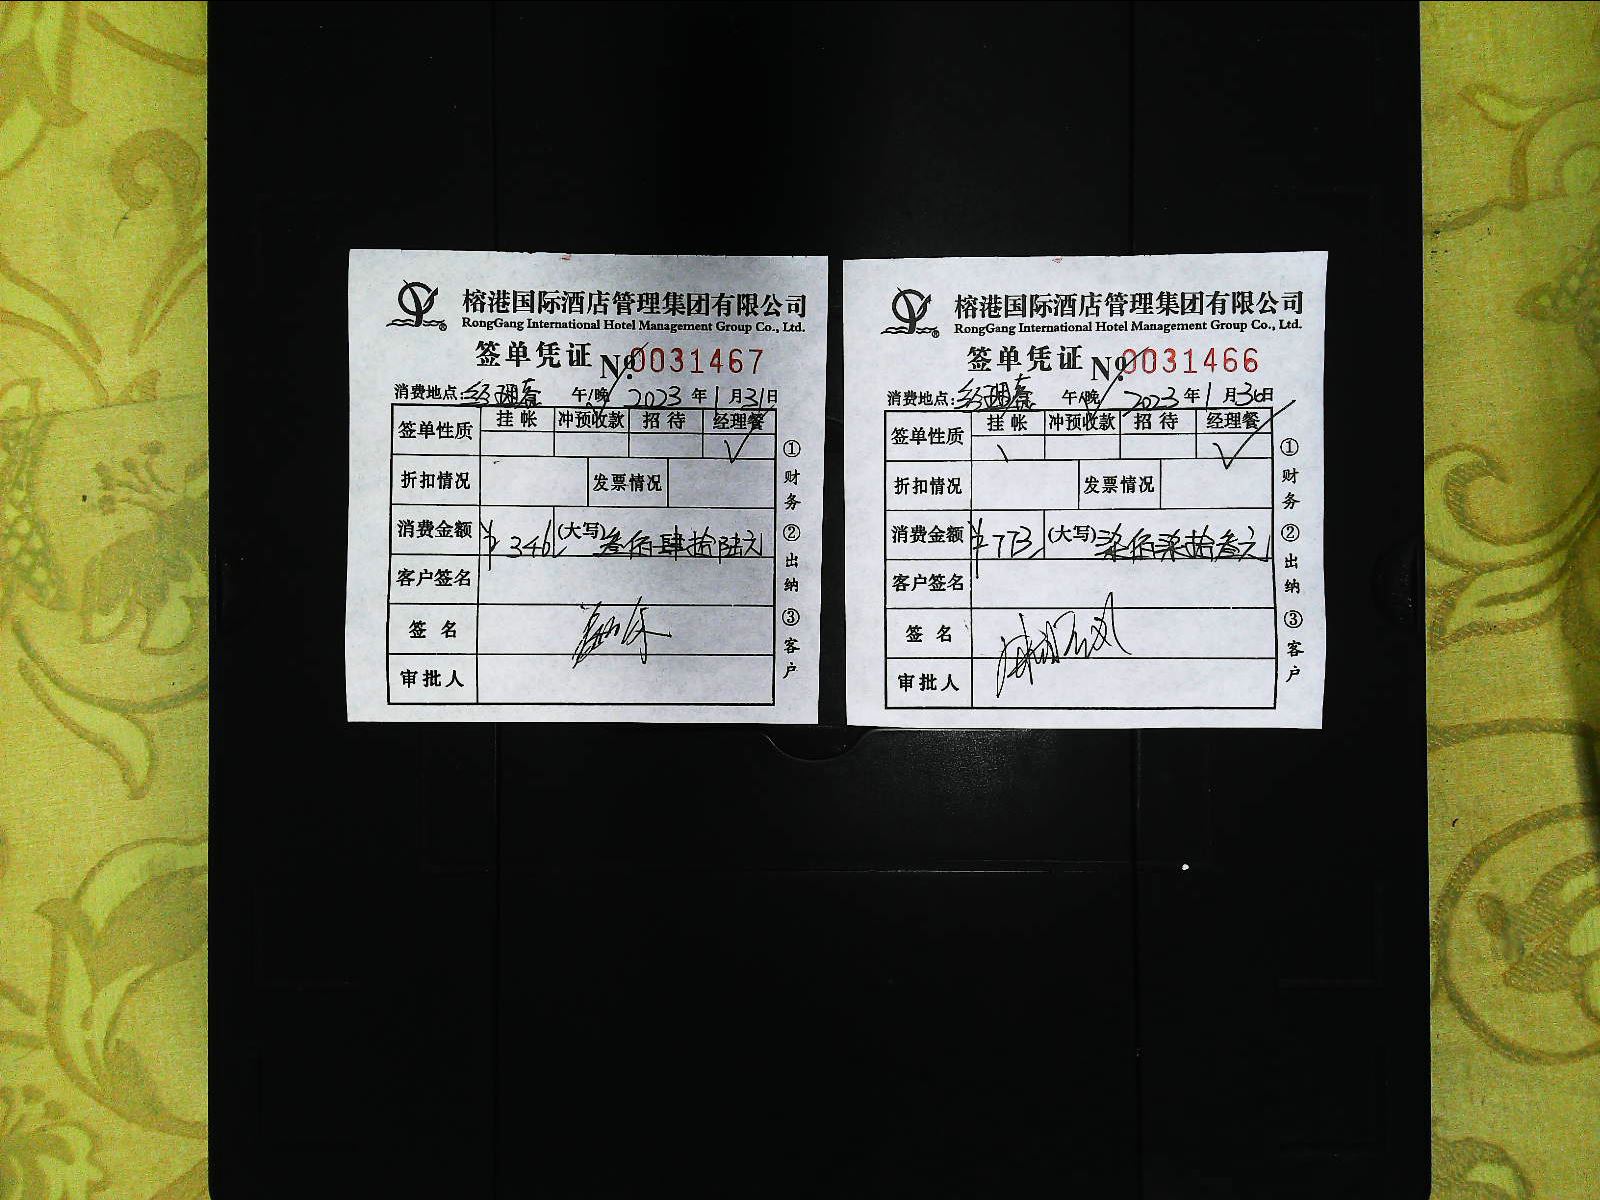 榕港国际酒店管理集团有限公司
RongGang International Hotel Management Group Co., Ltd.
签单凭证 №.0031467
消费地点: 午/晚 2023 年 1 月 31 日
签单性质 挂帐 冲预收款 招待 经理餐
√
折扣情况 发票情况
消费金额 ¥346 (大写) 叁佰肆拾陆元
客户签名
签名
审批人
①财务 ②出纳 ③客户
榕港国际酒店管理集团有限公司
RongGang International Hotel Management Group Co., Ltd.
签单凭证 №.0031466
消费地点: 午/晚 2023 年 1 月 日
签单性质 挂帐 冲预收款 招待 经理餐
√
折扣情况 发票情况
消费金额 ¥773 (大写) 柒佰柒拾叁元
客户签名
签名
审批人
①财务 ②出纳 ③客户